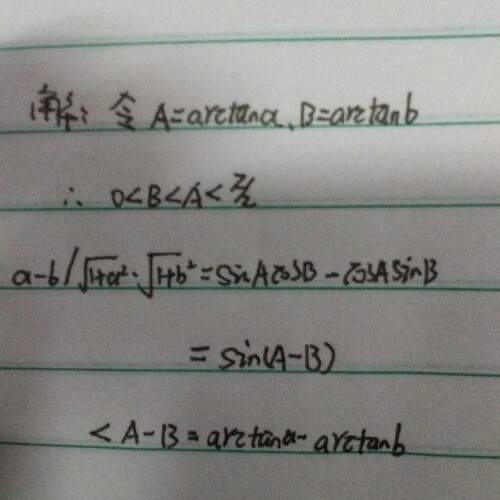 解: 令 A=arctana、B=arctanb
∴ 0<B<A<π/2
a-b/√1+a²·√1+b²=sinAcosB-cosAsinB
=sin(A-B)
<A-B=arctana-arctanb